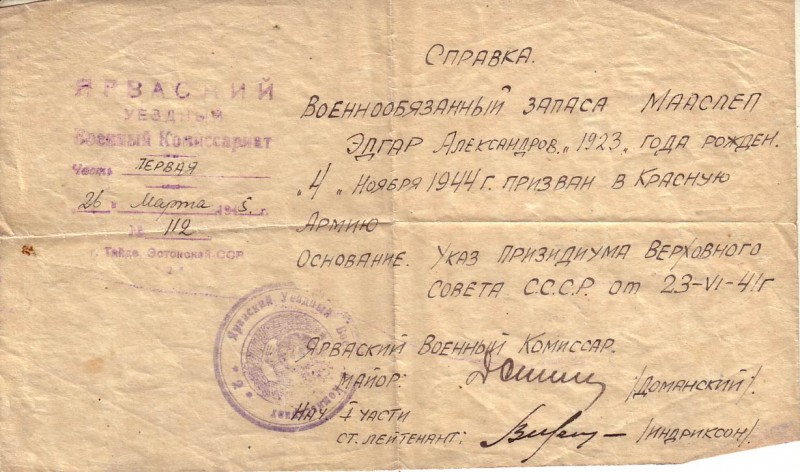 ЯРВАСКИЙ
УЕЗДНЫЙ
Военный Комиссариат
Часть ПЕРВАЯ
26 " Марта 1945 г.
№ 112
г. Тайде, Эстонской ССР
СПРАВКА.
ВОЕННООБЯЗАННЫЙ ЗАПАСА МААСЛЕП
ЭДГАР АЛЕКСАНДРОВ. „1923„ ГОДА РОЖДЕН.
„4„ НОЯБРЯ 1944 Г. ПРИЗВАН В КРАСНУЮ
АРМИЮ
ОСНОВАНИЕ. УКАЗ ПРИЗИДИУМА ВЕРХОВНОГО
СОВЕТА С.С.С.Р. ОТ 23-VI-41г
ЯРВАСКИЙ ВОЕННЫЙ КОМИССАР.
МАЙОР: /ДОМАНСКИЙ/.
НАЧ. I ЧАСТИ
СТ. ЛЕЙТЕНАНТ: /ИНДРИКСОН/.
Ярваский Уездный